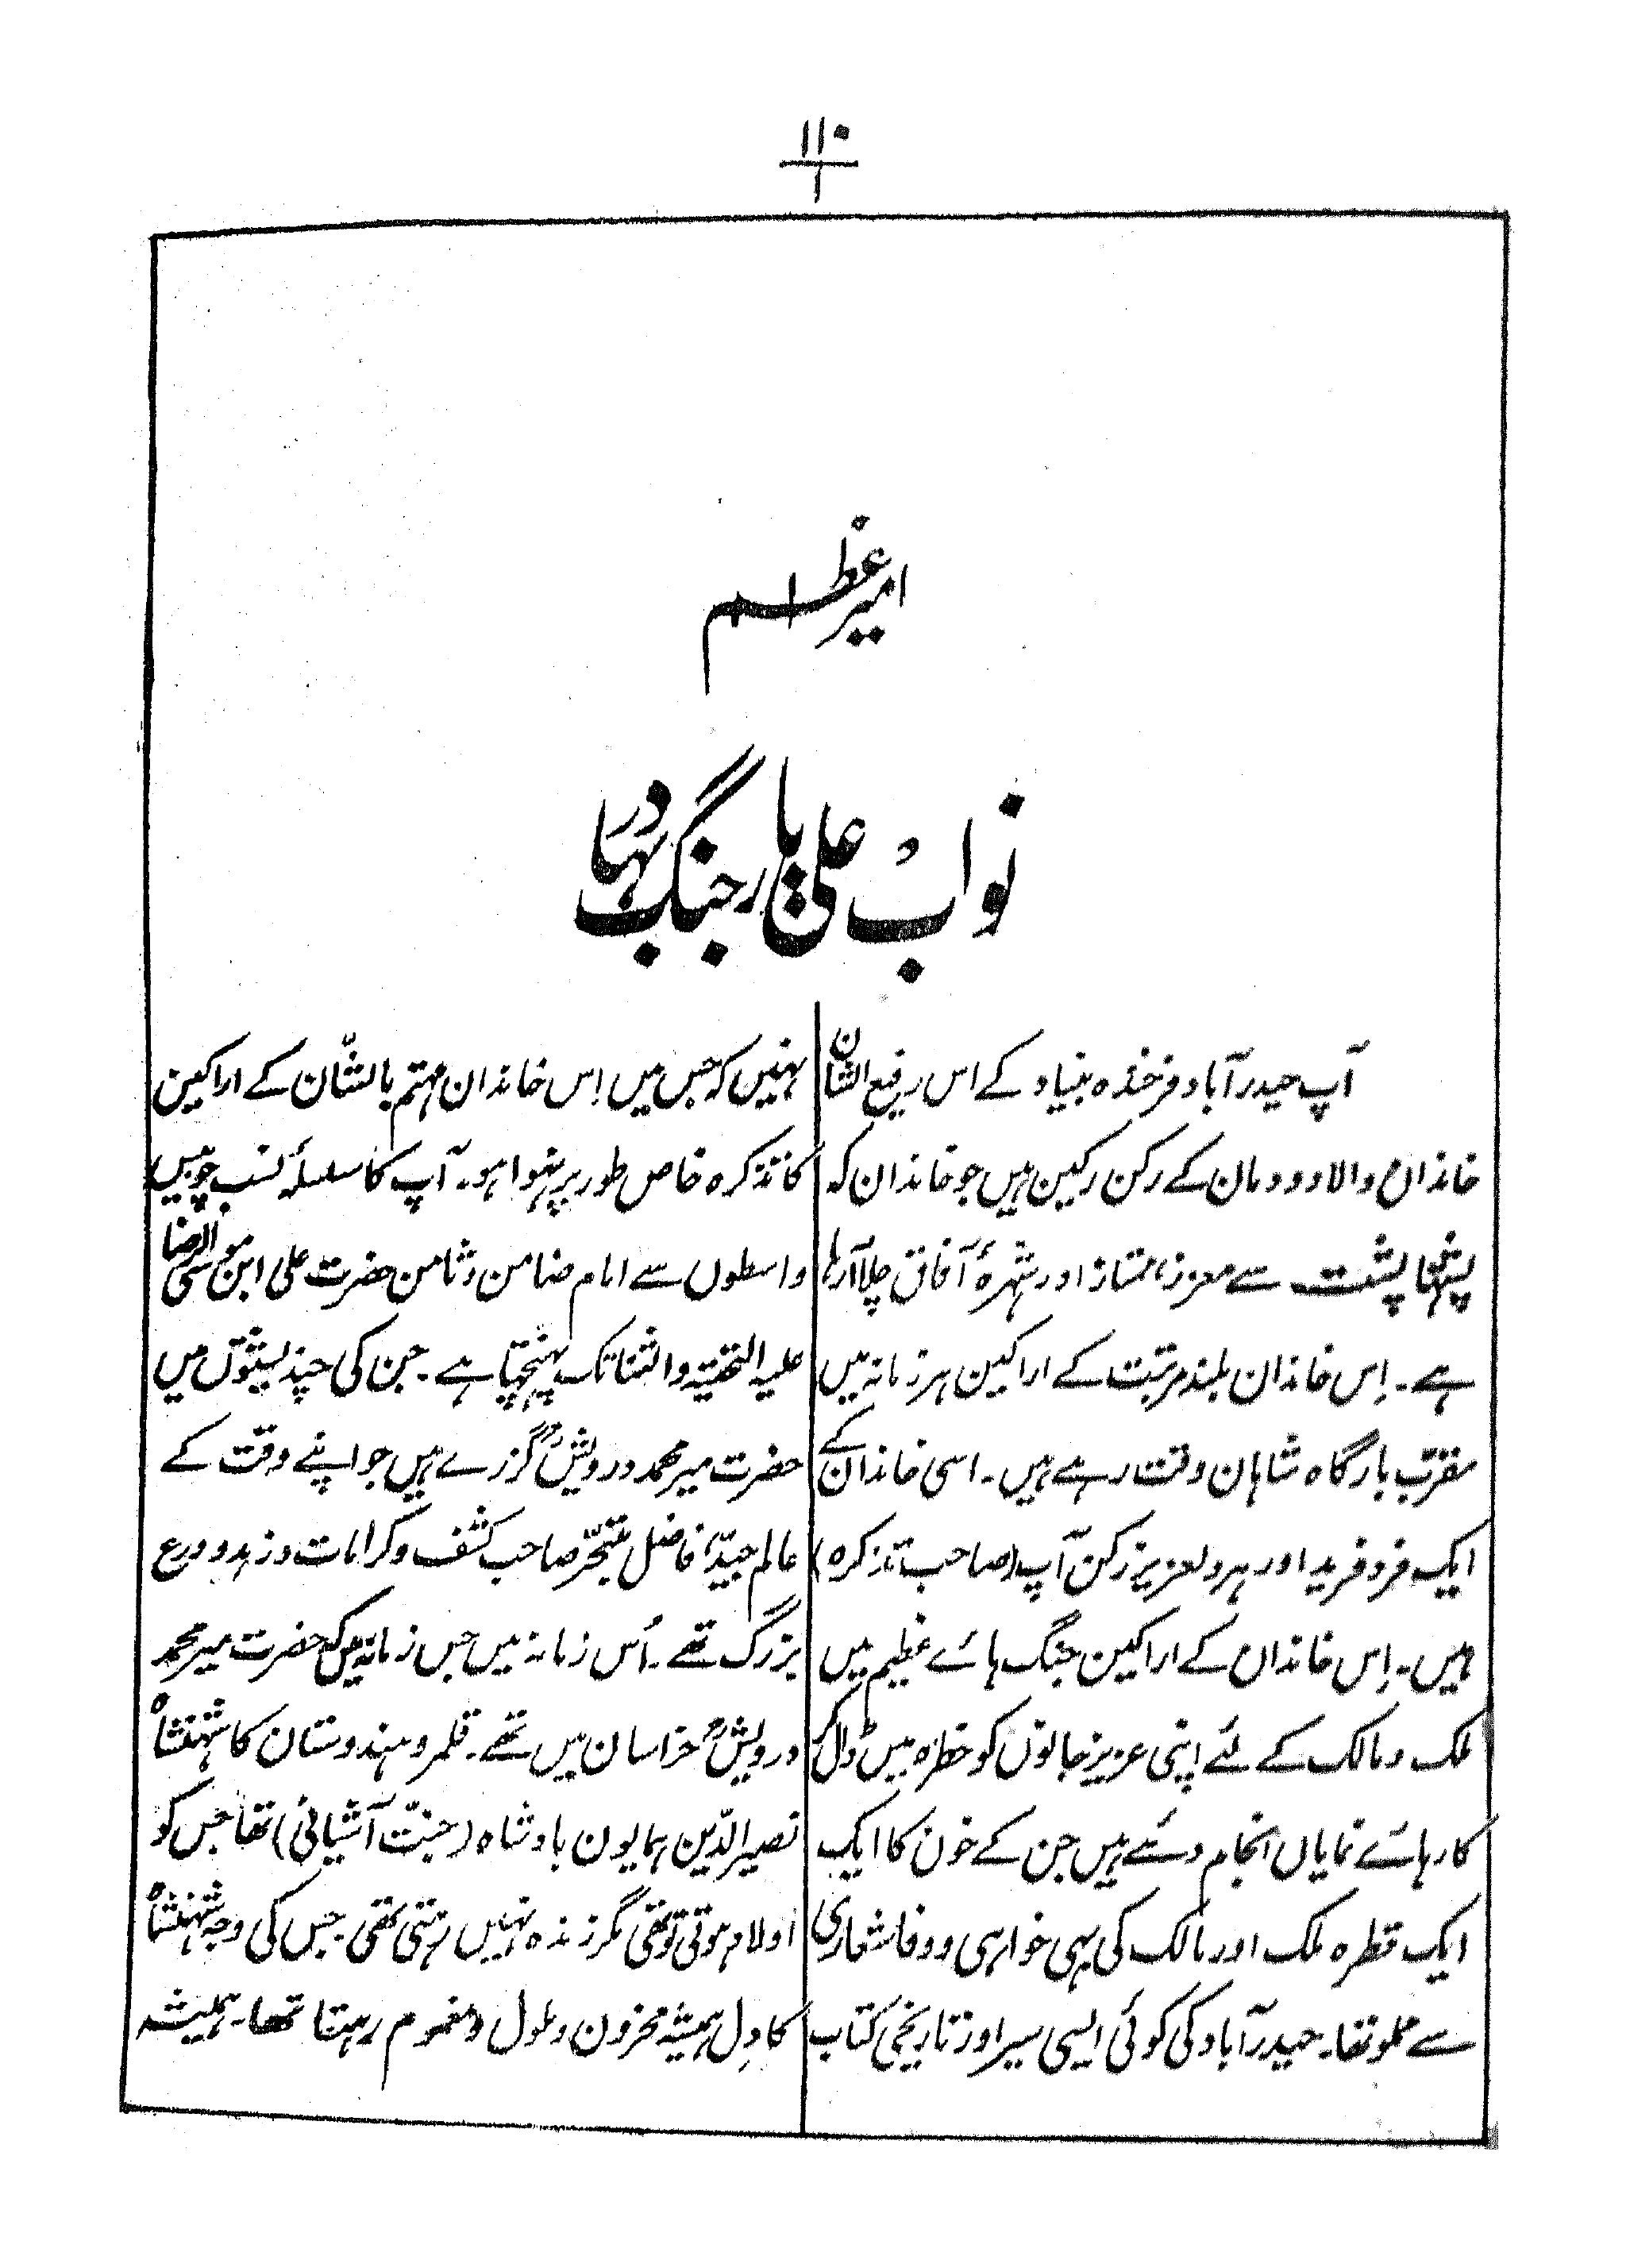 ۱۱۰
۱
امیر عظیم
نواب علی یار جنگ بہادر
آپ حیدرآباد فرخندہ بنیاد کے اس رفیع الشان
خاندان والا دودمان کے رکن رکین ہیں جو خاندان کہ
پشتہا پشت سے معزز، ممتاز اور شہرۂ آفاق چلا آرہا
ہے۔ اِس خاندان بلند مرتبت کے اراکین ہر زمانہ میں
مقرب بارگاہ شاہان وقت رہے ہیں۔ اسی خاندان کے
ایک فرد فرید اور ہردلعزیز رکن آپ (صاحب تذکرہ)
ہیں۔ اِس خاندان کے اراکین جنگ ہائے عظیم میں
ملک و مالک کے لئے اپنی عزیز جانوں کو خطرہ میں ڈال کر
کارہائے نمایاں انجام دئے ہیں جن کے خون کا ایک
ایک قطرہ ملک اور مالک کی بہی خواہی و وفا شعاری
سے مملو تھا۔ حیدرآباد کی کوئی ایسی سیر اور تاریخی کتاب
نہیں کہ جس میں اِس خاندان مہتم بالشّان کے اراکین
کا تذکرہ خاص طور پر نہوا ہو۔ آپ کا سلسلۂ نسب چوبیس
واسطوں سے امام ضامن و ثامن حضرت علی ابن موسی الرضا
علیہ التحیۃ والثنا تک پہنچتا ہے۔ جن کی چند پشتوں میں
حضرت میر محمد درویشؒ گزرے ہیں جو اپنے وقت کے
عالم جیّد، فاضل متبحّر صاحب کشف و کرامات و زہد و ورع
بزرگ تھے۔ اُس زمانہ میں جس زمانہ میں کہ حضرت میر محمد
درویشؒ خراسان میں تھے۔ قلمرو ہندوستان کا شہنشاہ
نصیر الدّین ہمایون بادشاہ (جنّت آشیانی) تھا جس کو
اولاد ہوتی تو تھی مگر زندہ نہیں رہتی تھی۔ جس کی وجہ شہنشاہ
کا دِل ہمیشہ محزون و ملول و مغموم رہتا تھا۔ ہمیشہ